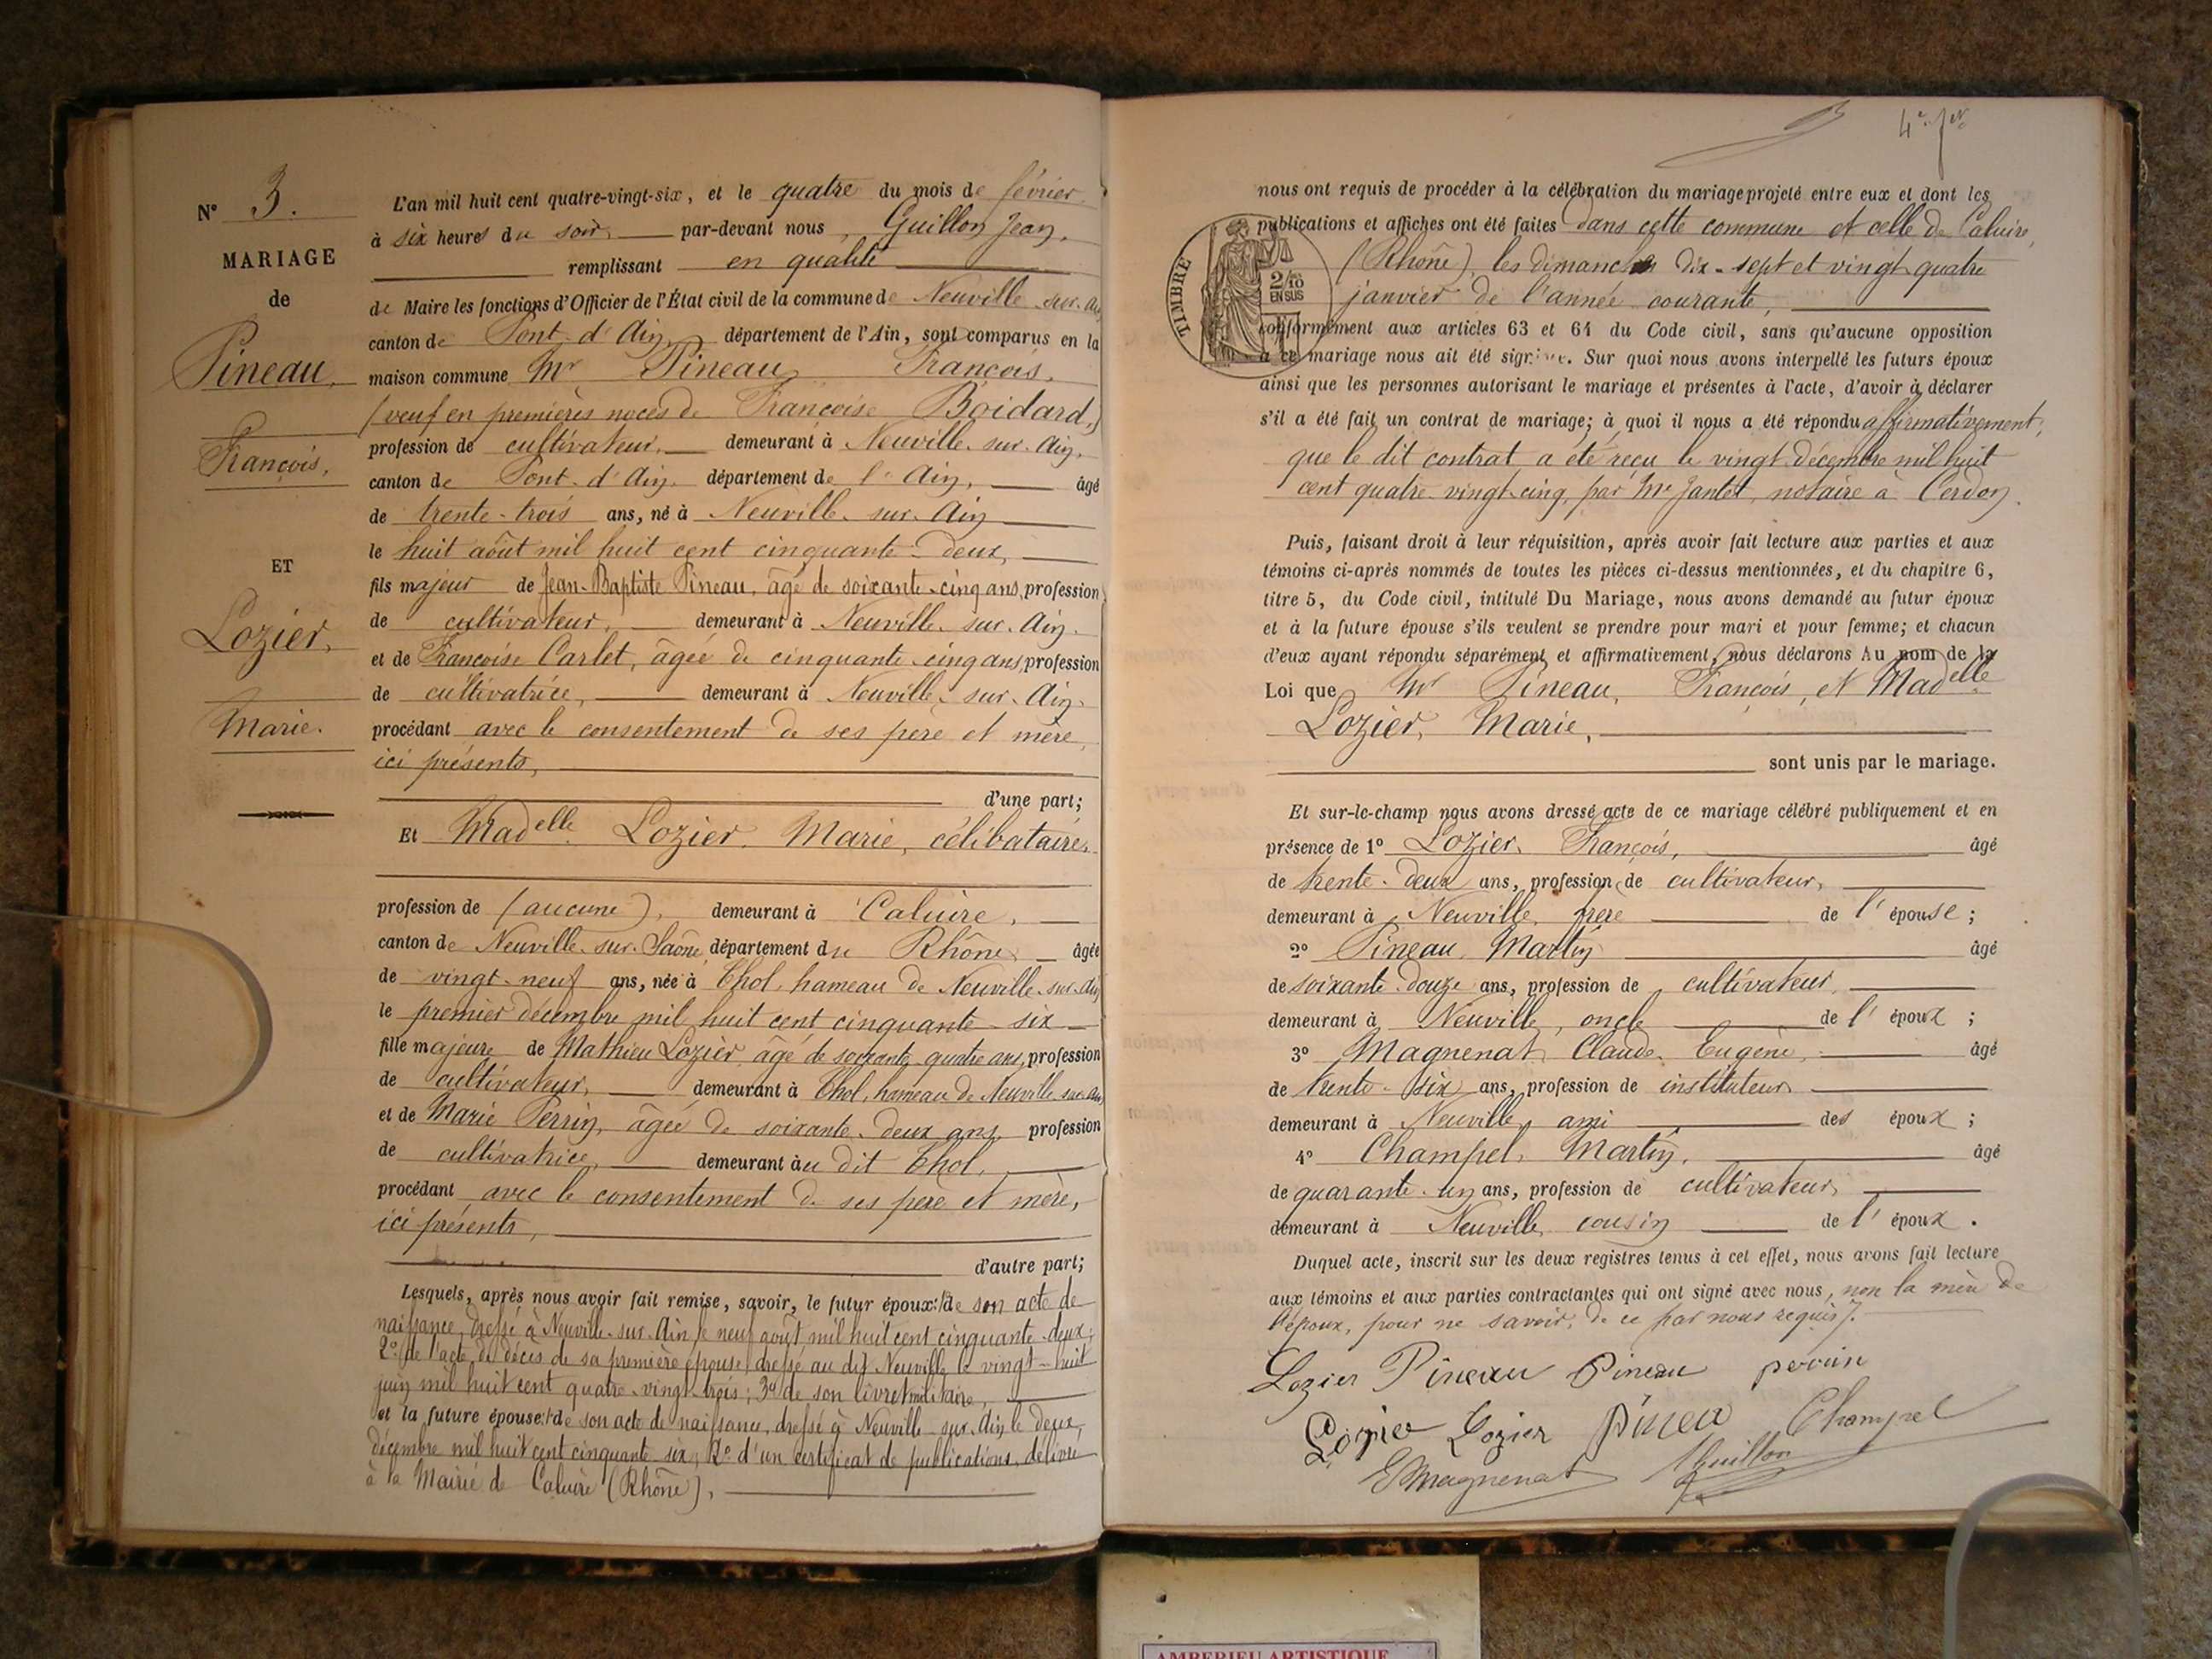 N° 3.
MARIAGE
de
Pineau,
François,
ET
Lozier,
Marie.
L'an mil huit cent quatre-vingt-six, et le quatre du mois de février
à six heures du soir, par-devant nous, Guillon Jean,
remplissant en qualité
de Maire les fonctions d'Officier de l'État civil de la commune de Neuville-sur-Ain
canton de Pont-d'Ain, département de l'Ain, sont comparus en la
maison commune Mr Pineau, François,
(veuf en premières noces de Françoise Boidard,)
profession de cultivateur, demeurant à Neuville-sur-Ain,
canton de Pont-d'Ain, département de l'Ain, âgé
de trente-trois ans, né à Neuville-sur-Ain
le huit août mil huit cent cinquante-deux,
fils majeur de Jean-Baptiste Pineau, âgé de soixante-cinq ans, profession
de cultivateur, demeurant à Neuville-sur-Ain.
et de Françoise Carlet, âgée de cinquante-cinq ans, profession
de cultivatrice, demeurant à Neuville-sur-Ain.
procédant avec le consentement de ses père et mère,
ici présents,
d'une part;
Et Madelle Lozier, Marie, célibataire,
profession de (aucune), demeurant à Caluire,
canton de Neuville-sur-Saône, département du Rhône, âgée
de vingt-neuf ans, née à Chol, hameau de Neuville-sur-Ain
le premier décembre mil huit cent cinquante-six
fille majeure de Mathieu Lozier, âgé de soixante-quatre ans, profession
de cultivateur, demeurant à Chol, hameau de Neuville-sur-Ain
et de Marie Perrin, âgée de soixante-deux ans, profession
de cultivatrice, demeurant au dit Chol,
procédant avec le consentement de ses père et mère,
ici présents,
d'autre part;
Lesquels, après nous avoir fait remise, savoir, le futur époux: 1° de son acte de
naissance, dressé à Neuville-sur-Ain le neuf août mil huit cent cinquante-deux;
2° de l'acte de décès de sa première épouse, dressé au dit Neuville le vingt-huit
juin mil huit cent quatre-vingt-trois; 3° de son livret militaire,
et la future épouse: 1° de son acte de naissance, dressé à Neuville-sur-Ain le deux
décembre mil huit cent cinquante-six; 2° d'un certificat de publications, délivré
à la Mairie de Caluire (Rhône),
TIMBRE
2/10
EN SUS
nous ont requis de procéder à la célébration du mariage projeté entre eux et dont les
publications et affiches ont été faites dans cette commune et celle de Caluire,
(Rhône), les dimanches dix-sept et vingt-quatre
janvier de l'année courante,
conformément aux articles 63 et 64 du Code civil, sans qu'aucune opposition
à ce mariage nous ait été signifiée. Sur quoi nous avons interpellé les futurs époux
ainsi que les personnes autorisant le mariage et présentes à l'acte, d'avoir à déclarer
s'il a été fait un contrat de mariage; à quoi il nous a été répondu affirmativement,
que le dit contrat a été reçu le vingt décembre mil huit
cent quatre-vingt-cinq, par Me Jantet, notaire à Cerdon.
Puis, faisant droit à leur réquisition, après avoir fait lecture aux parties et aux
témoins ci-après nommés de toutes les pièces ci-dessus mentionnées, et du chapitre 6,
titre 5, du Code civil, intitulé Du Mariage, nous avons demandé au futur époux
et à la future épouse s'ils veulent se prendre pour mari et pour femme; et chacun
d'eux ayant répondu séparément et affirmativement, nous déclarons Au nom de la
Loi que Mr Pineau, François, et Madelle
Lozier, Marie,
sont unis par le mariage.
Et sur-le-champ nous avons dressé acte de ce mariage célébré publiquement et en
présence de 1° Lozier, François, âgé
de trente-deux ans, profession de cultivateur,
demeurant à Neuville, frère de l'épouse;
2° Pineau, Martin âgé
de soixante-douze ans, profession de cultivateur,
demeurant à Neuville, oncle de l'époux;
3° Magnenat, Claude-Eugène, âgé
de trente-six ans, profession de instituteur
demeurant à Neuville, ami des époux;
4° Champel, Martin, âgé
de quarante-un ans, profession de cultivateur,
demeurant à Neuville, cousin de l'époux.
Duquel acte, inscrit sur les deux registres tenus à cet effet, nous avons fait lecture
aux témoins et aux parties contractantes qui ont signé avec nous, non la mère de
l'époux, pour ne savoir, de ce par nous requise.
Lozier Pineau Pineau perrin
Lozier Lozier Pineau Champel
E Magnenat Guillon
AMBERIEU ARTISTIQUE